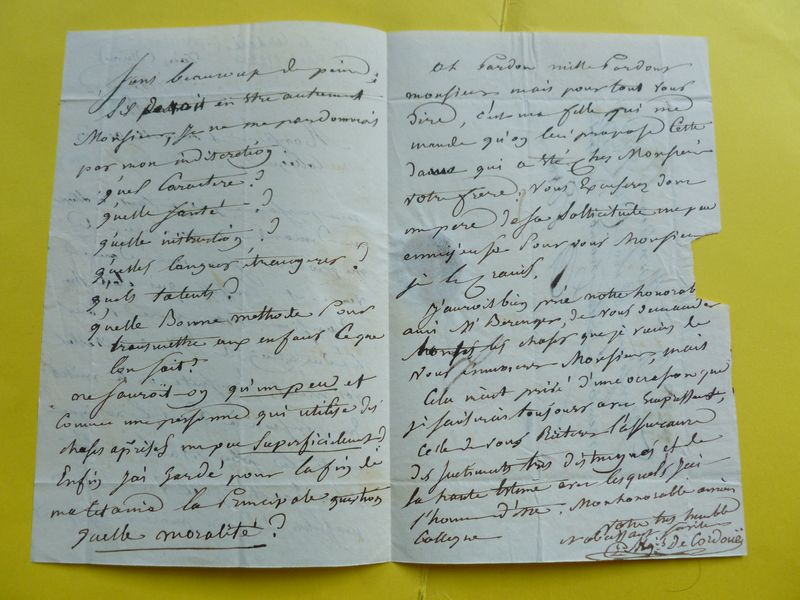 sans beaucoup de peine.
S'il devoit en être autrement
Monsieur, je ne me pardonnerois
pas mon indiscretion.
quel Caractere?
quelle santé?
quelle instruction?
quelles langues etrangeres?
quels talents?
quelle Bonne methode pour
transmettre aux enfans Ceque
l'on sait?
ne sauroit-on qu'un peu et
Comme une personne qui utilise des
choses aprises un peu superficielement
Enfin j'ai gardé pour la fin de
ma litanie la Principale question
quelle moralité?
ah Pardon mille Pardons
monsieur mais pour tout vous
dire, c'est ma fille qui me
mande qu'on lui propose Cette
dame qui a été chez Monsieur
votre frere. Vous Excuserez donc
un pere de sa sollicitude un peu
ennuyeuse pour vous Monsieur
je le Crains.
J'aurois bien prié notre honorable
ami Mr Berenger, de vous demander
les choses que je viens de
vous ennuier Monsieur, mais
Cela m'eut privé d'une ocasion que
je saisirai toujours avec Empressement,
Celle de vous Réiterer l'assurance
des sentiments tres distingués et de
la haute Estime avec lesquels j'ai
l'honneur d'être, Mon honorable ancien
Collegue
votre tres humble
de Cordoüe